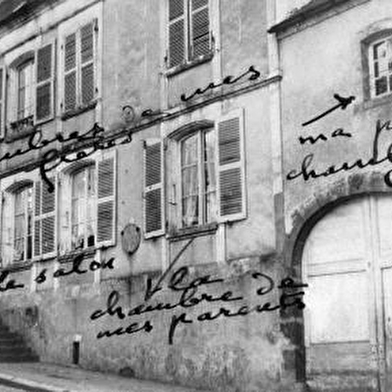 chambres de mes
frères
ma
chambre
le salon
la
chambre de
mes parents